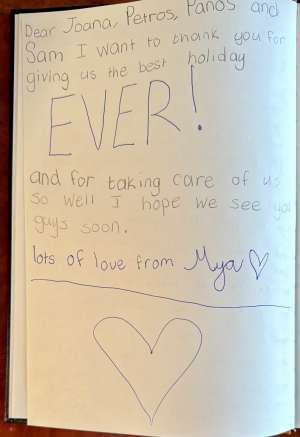 Dear Joana, Petros, Panos and
Sam I want to thank you for
giving us the best holiday
EVER!
and for taking care of us
so well I hope we see you
guys soon.
lots of love from Mya